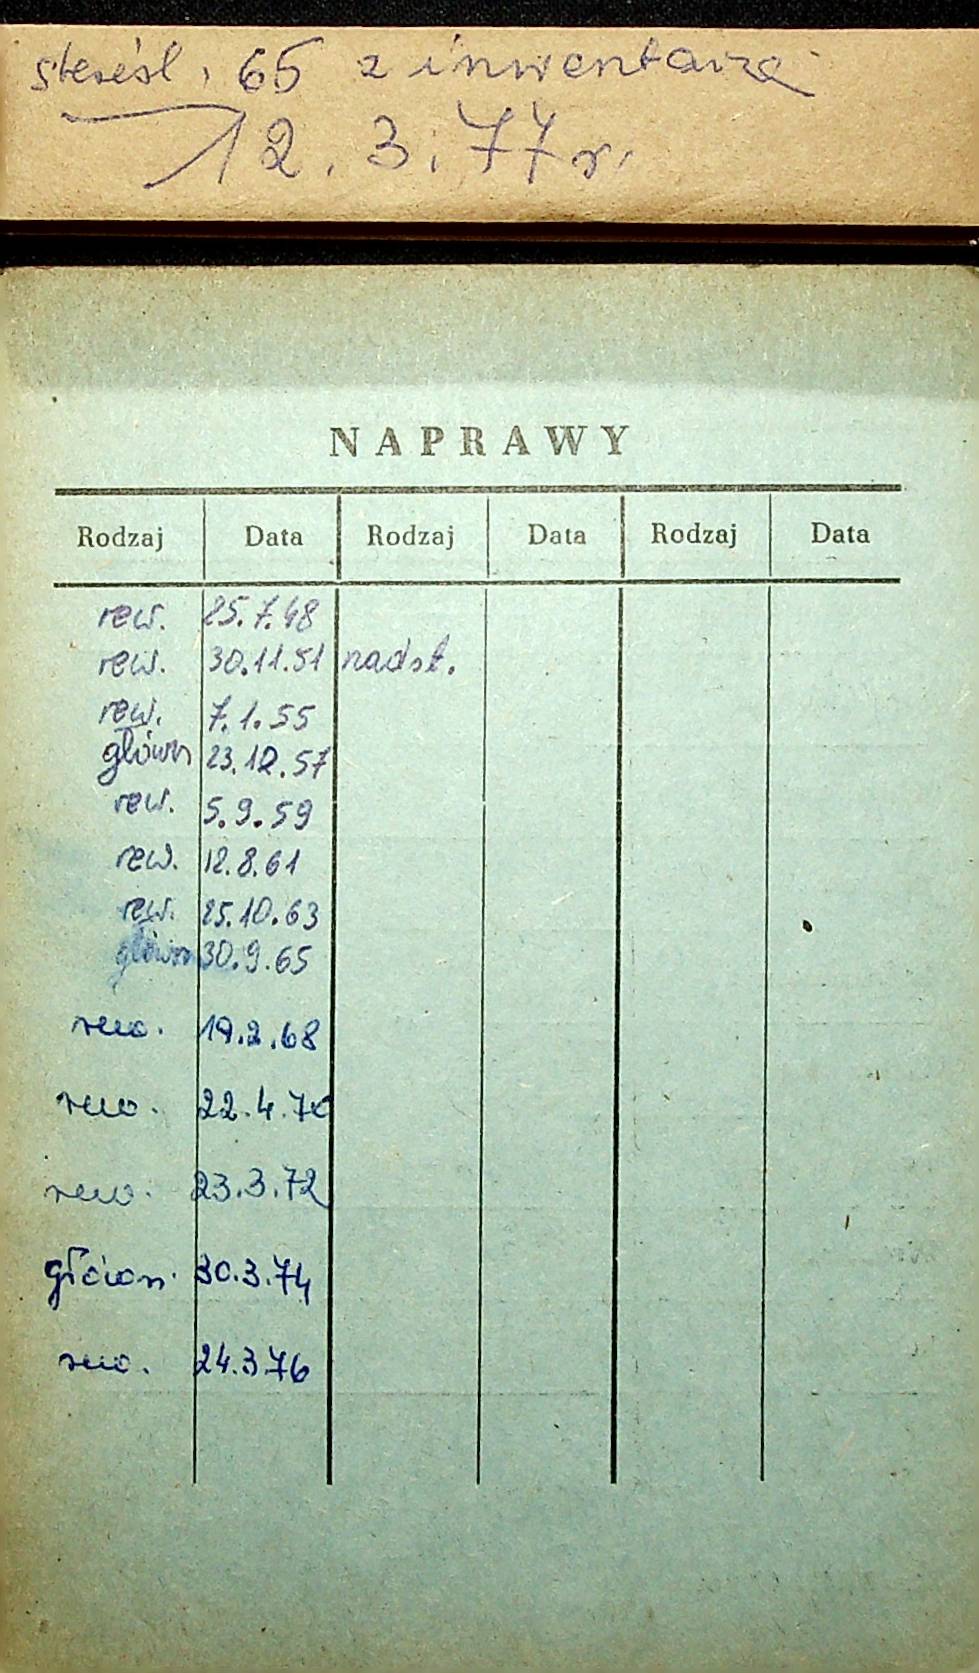 skreśl. 65 z inwentarza
12.3.77 r.
NAPRAWY
Rodzaj Data Rodzaj Data Rodzaj Data
rew. 25.7.48
rew. 30.11.51 nadst.
rew. 7.1.55
główn 23.12.57
rew. 5.9.59
rew. 12.8.61
rew. 25.10.63
główn 30.9.65
rew. 19.2.68
rew. 22.4.70
rew. 23.3.72
główn. 30.3.74
rew. 24.3.76